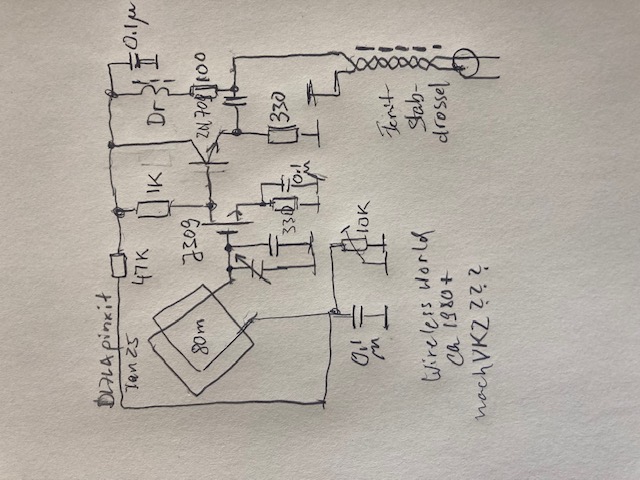 0.1µ
Dr
100
330
Ferrit
Stab-
drossel
1K
J309
0.1
µ
330
10K
47K
80m
0.1
µ
Jan 25
Wireless World
ca 1980+
nach VK2 ???